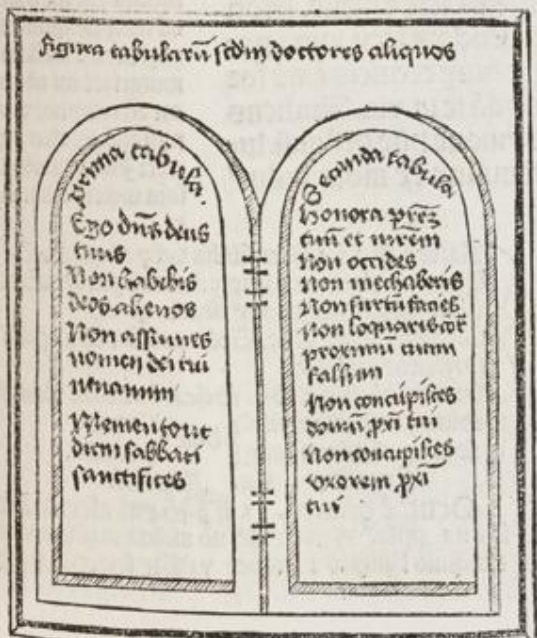 Figura tabularū ſcḋm doctores aliquos
Prima tabula.
Ego dn̄s deus
tuus
Non habebis
deos alienos
Non aſſumes
nomen dei tui
in vanum
Memento ut
diem ſabbati
ſanctifices
Secunda tabula
Honora pr̄ez
tuū et mr̄em
Non occides
Non mechaberis
Non furtū facies
Non loquaris cōt̄
proximū tuum
falſum
Non concupiſces
domū ꝓxi tui
Non concupiſces
vxorem ꝓxi
tui